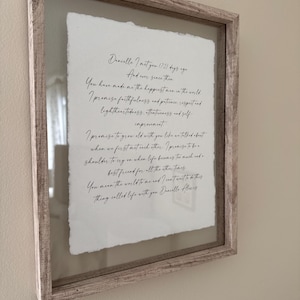 Danielle I met you 1721 days ago
And ever since then
You have made me the happiest man in the world
I promise faithfulness and patience, respect and
lightheartedness, attentiveness and self-
improvement.
I promise to grow old with you like we talked about
when we first met each other. I promise to be a
shoulder to cry on when life becomes too much and a
best friend for all the other times.
You mean the world to me and I can't wait to do this
thing called life with you Danielle